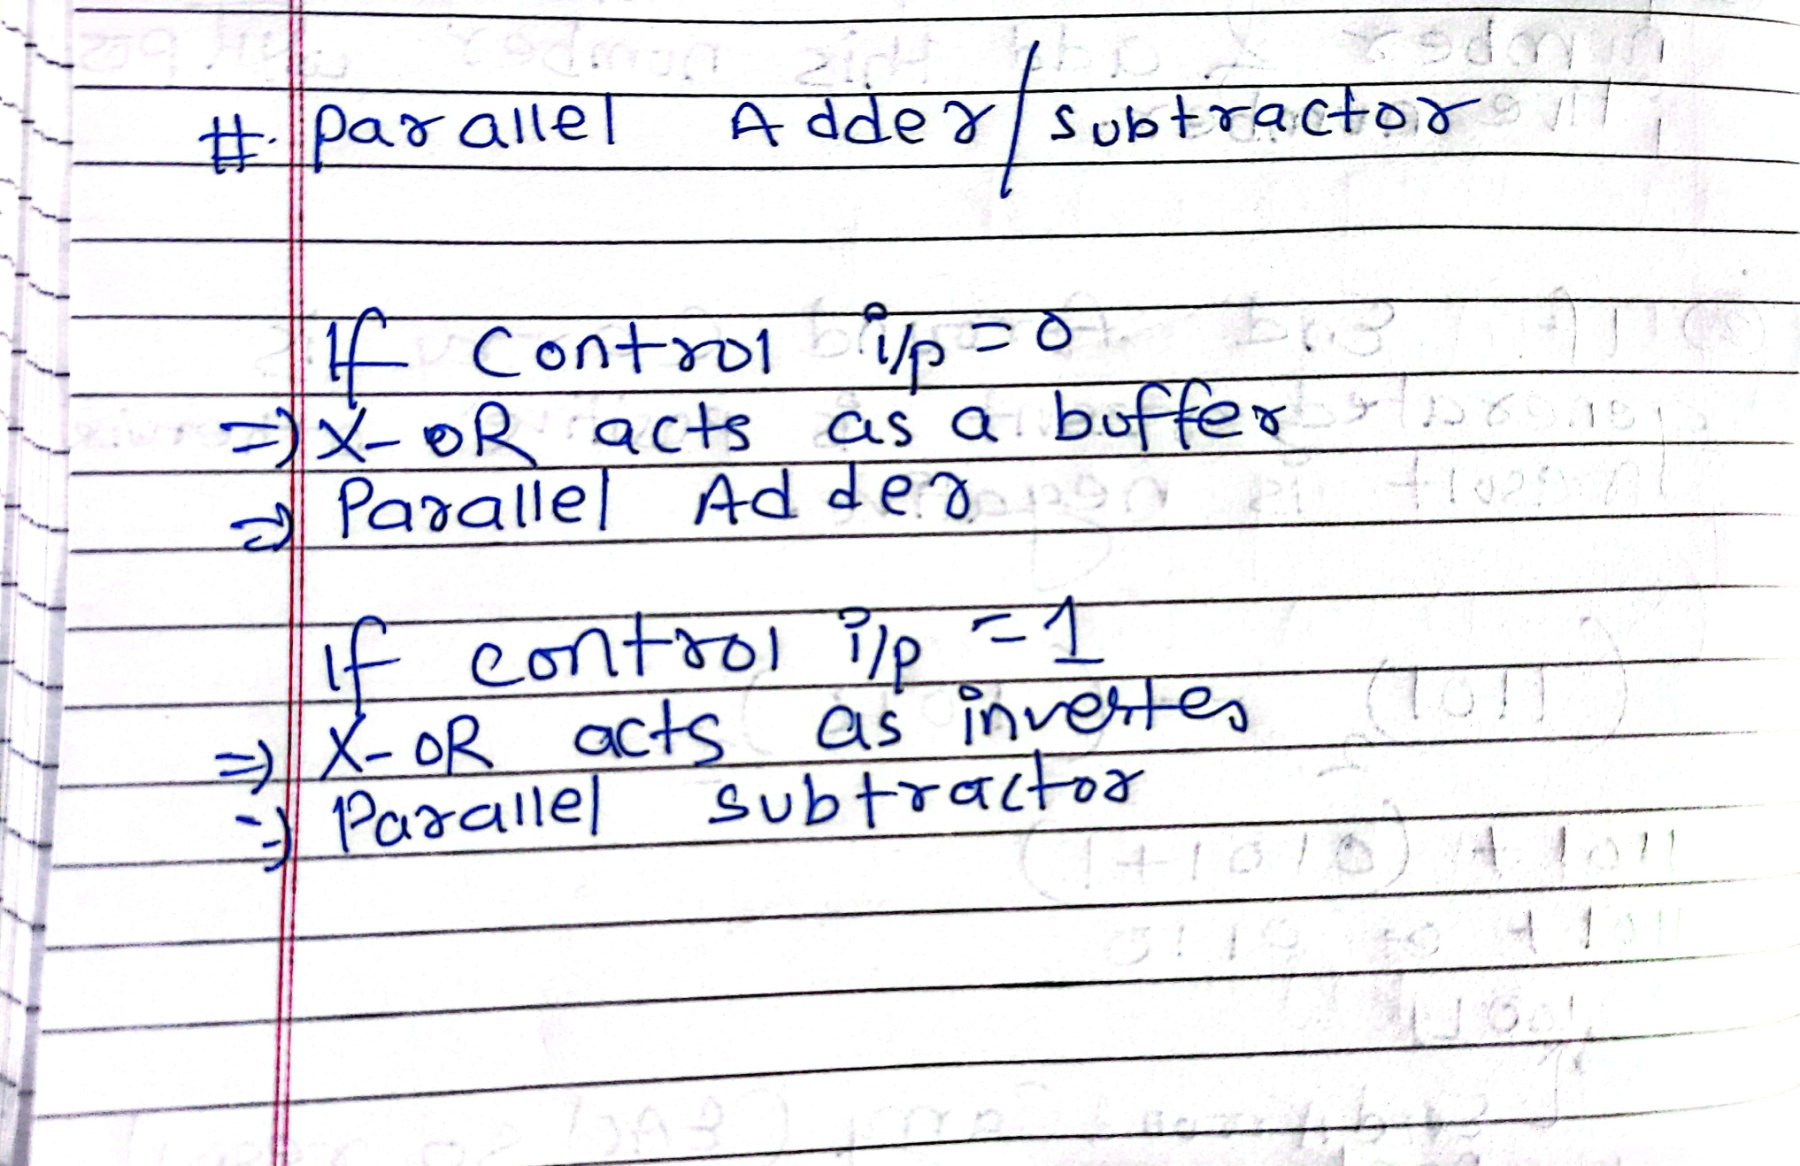 #. Parallel Adder/subtractor
If control i/p = 0
=> X-OR acts as a buffer
=> Parallel Adder
if control i/p = 1
=> X-OR acts as inverter
=> Parallel subtractor